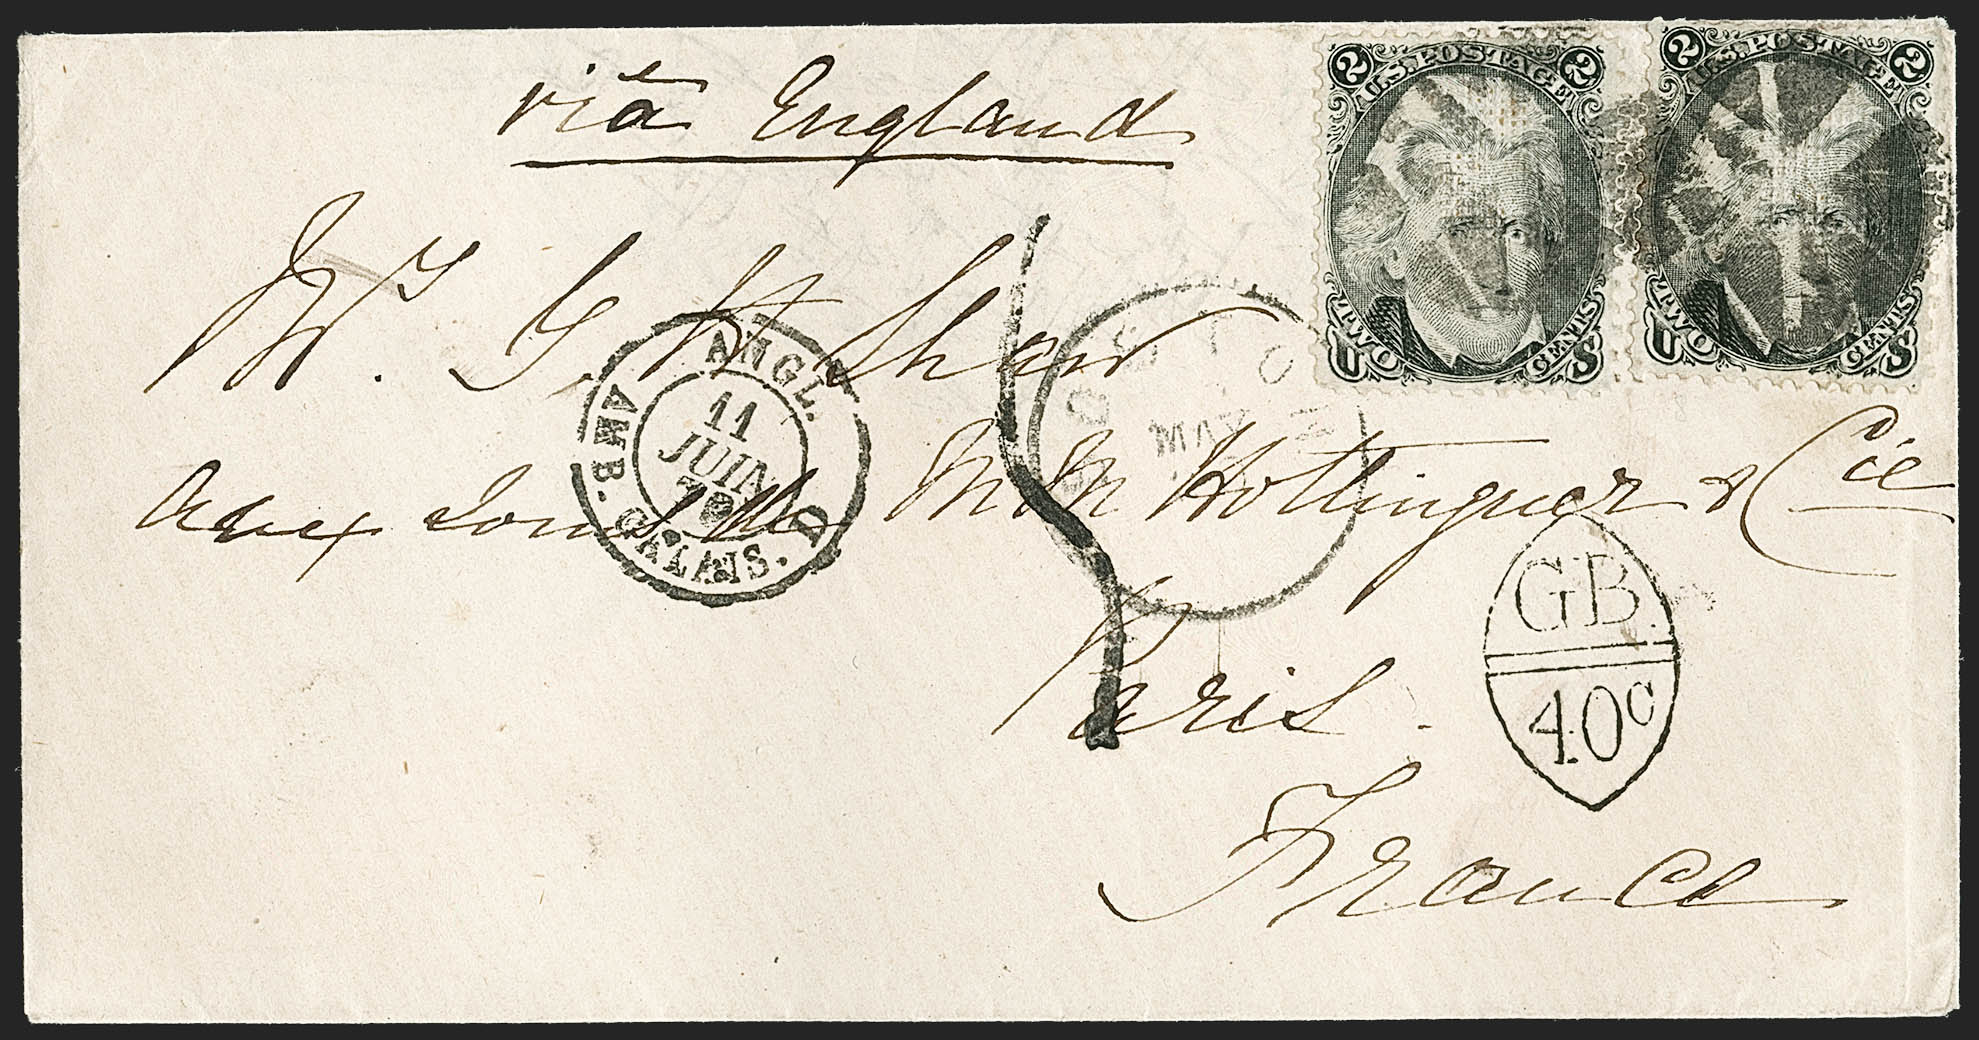 viâ England
2 U.S. POSTAGE 2
TWO CENTS
U S
2 U.S. POSTAGE 2
TWO CENTS
U S
Mr G. H. Shaw
ANGL.
AMB. CALAIS. D
11
JUIN
70
BOSTON
MAY
aux soins de MM Hottinguer & Cie
Paris.
GB.
40c
France